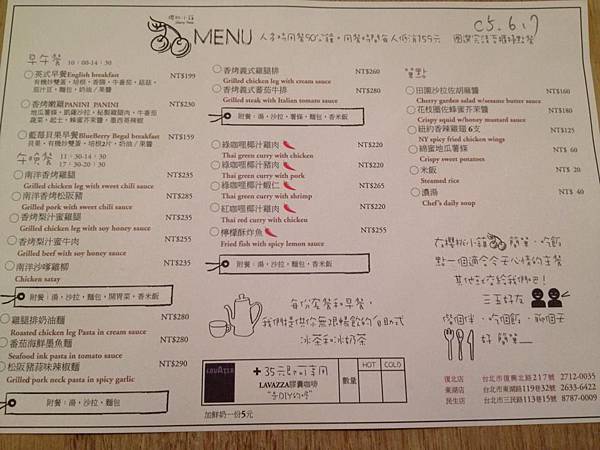 櫻桃小鎮
MENU
人多時用餐90分鐘。用餐時間每人低消159元
C5.6.17
圈選完請至櫃檯點餐
早午餐 10:00-14:30
英式早餐English breakfast NT$199
有機炒雙蛋,培根,香腸,牛番茄,蘑菇,
茄汁豆,麵包,奶油/果醬
香烤嫩雞PANINI PANINI NT$230
地瓜薯條,凱薩沙拉,秘製雞腿肉,牛番茄
蔬菜,起士,蜂蜜芥末醬,墨西哥辣椒
藍莓貝果早餐BlueBerry Begal breakfast NT$159
貝果,有機炒雙蛋,培根2片,奶油/果醬
午晚餐 11:30-14:30
17:30-20:30
南洋香烤雞腿 NT$235
Grilled chicken leg with sweet chili sauce
南洋香烤松阪豬 NT$285
Grilled pork with sweet chili sauce
香烤梨汁蜜雞腿 NT$235
Grilled chicken leg with soy honey sauce
香烤梨汁蜜牛肉 NT$255
Grilled beef with soy honey sauce
南洋沙嗲雞柳 NT$235
Chicken satay
附餐:湯,沙拉,麵包,開胃菜,香米飯
雞腿排奶油麵 NT$280
Roasted chicken leg Pasta in cream sauce
番茄海鮮墨魚麵 NT$280
Seafood ink pasta in tomato sauce
松阪豬蒜味辣椒麵 NT$290
Grilled pork neck pasta in spicy garlic
附餐:湯,沙拉,麵包
香烤義式雞腿排 NT$260
Grilled chicken leg with cream sauce
香烤義式蕃茄牛排 NT$280
Grilled steak with Italian tomato sauce
附餐:湯,沙拉,薯條,麵包,香米飯
綠咖哩椰汁雞肉 NT$220
Thai green curry with chicken
綠咖哩椰汁豬肉 NT$220
Thai green curry with pork
綠咖哩椰汁蝦仁 NT$265
Thai green curry with shrimp
紅咖哩椰汁雞肉 NT$220
Thai red curry with chicken
檸檬酥炸魚 NT$255
Fried fish with spicy lemon sauce
附餐:湯,沙拉,麵包,香米飯
每份套餐和早餐,
我們提供你無限暢飲的自助式
冰茶和冰奶茶
LAVAZZA
+35元即可享用
LAVAZZA膠囊咖啡
"手DIY的呀"
數量
HOT
COLD
加鮮奶一份5元
單點
田園沙拉佐胡麻醬 NT$160
Cherry garden salad w/sesame butter sauce
花枝圈佐蜂蜜芥茉醬 NT$180
Crispy squid w/honey mustard sauce
紐約香辣雞翅 6支 NT$125
NY spicy fried chicken wings
綿蜜地瓜薯條 NT$ 60
Crispy sweet potatoes
米飯 NT$ 20
Steamed rice
濃湯 NT$ 40
Chef's daily soup
在櫻桃小鎮 簡單·吃飯
點一個適合今天心情的主餐
其他就交給我們吧!
三五好友
做個伴、吃個飯、聊個天
好 簡單
復北店 台北市復興北路217號 2712-0035
東湖店 台北市東湖路119巷32號 2633-6422
民生店 台北市三民路113巷15號 8787-0009